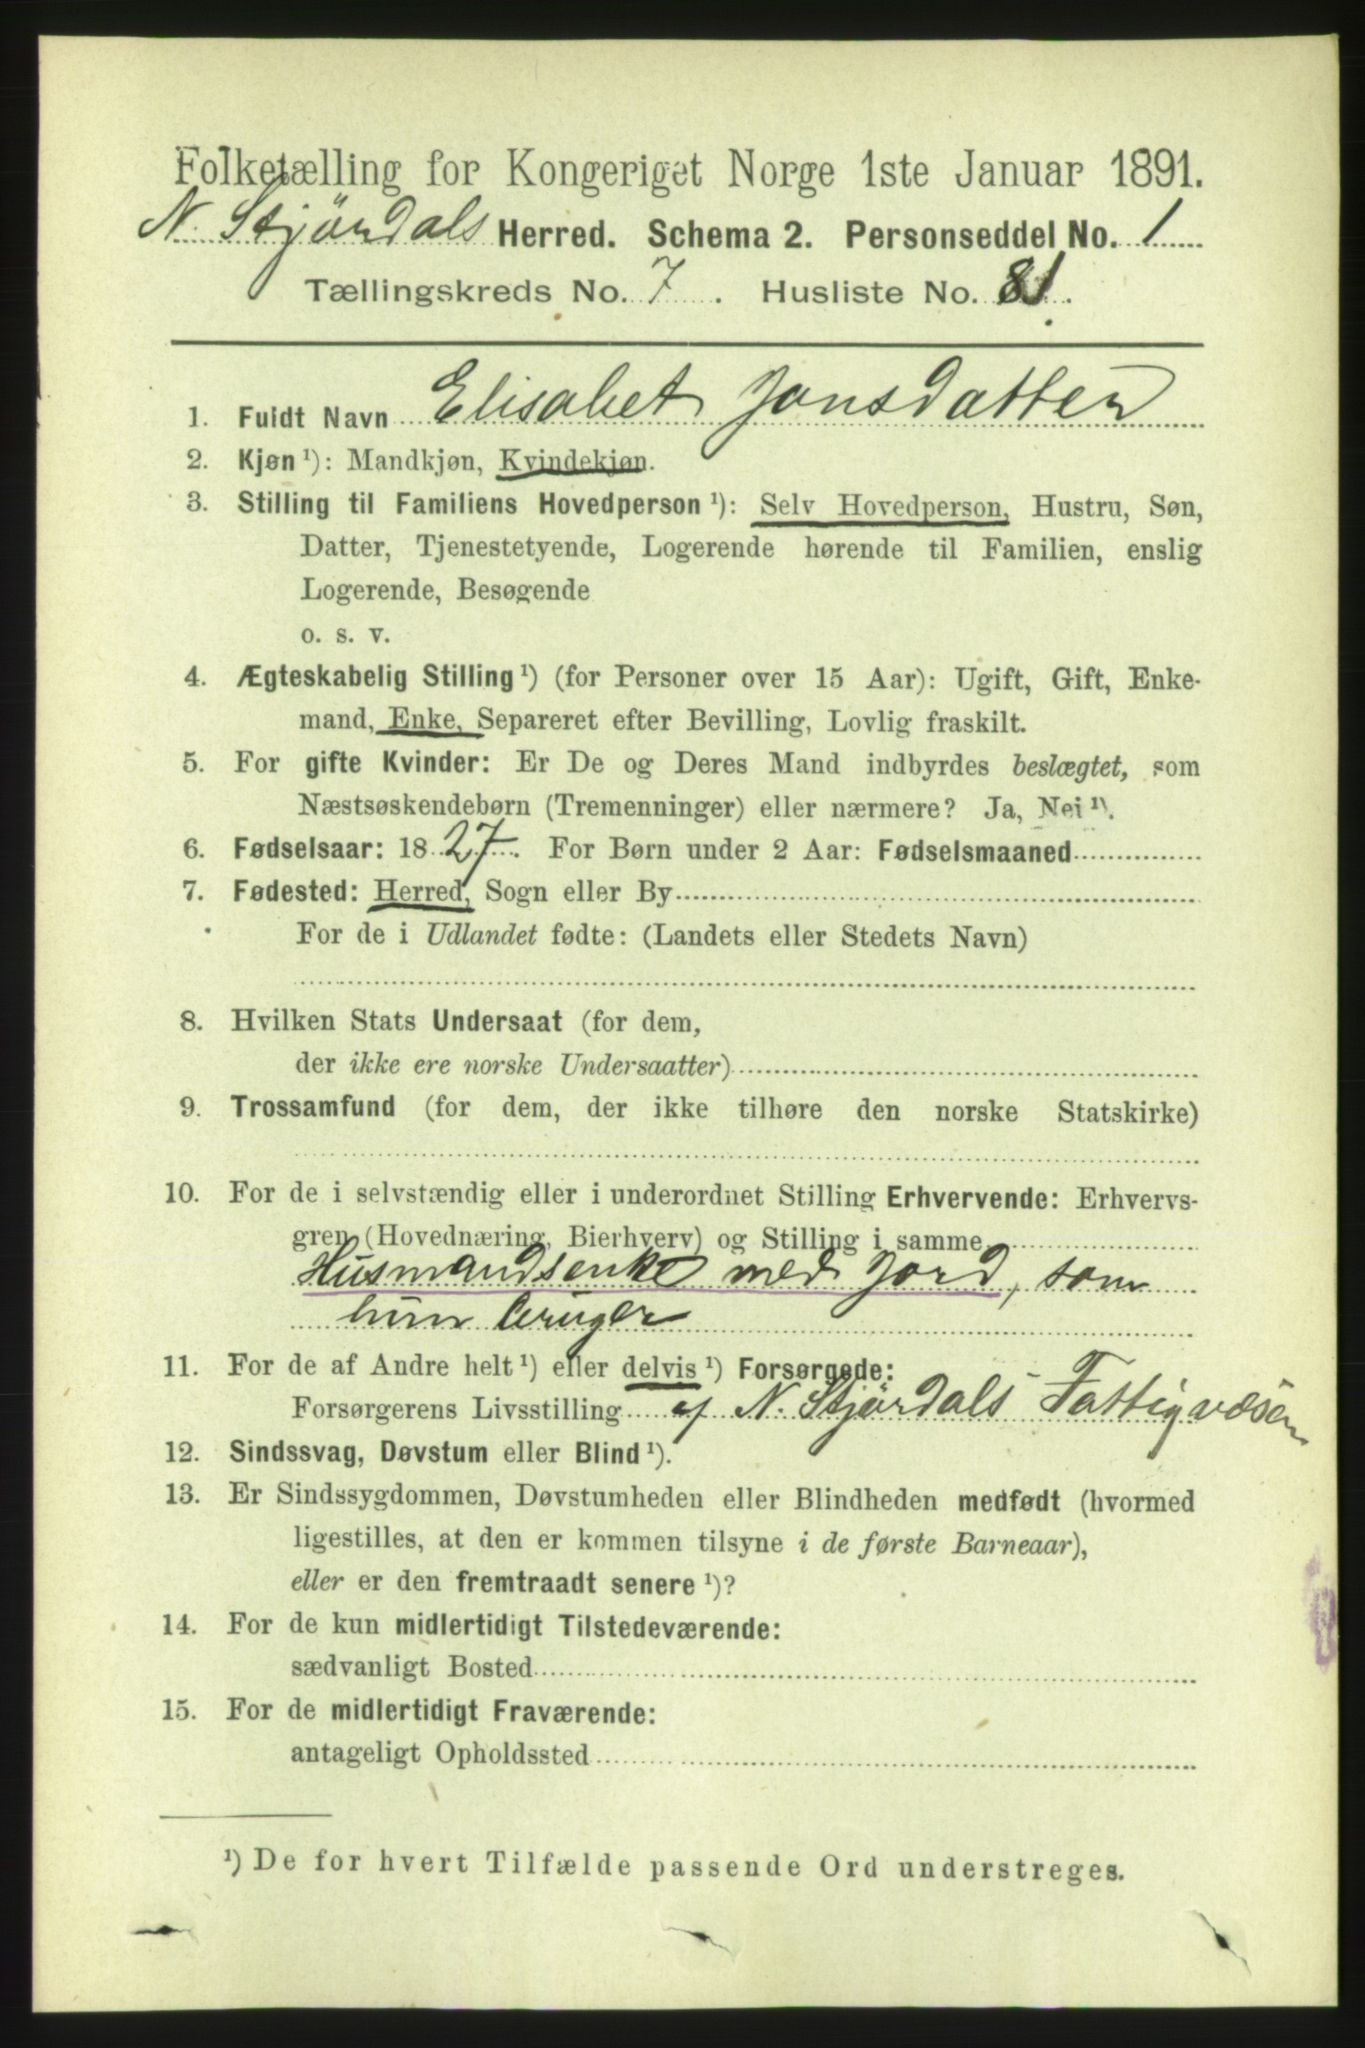 Folketælling for Kongeriget Norge 1ste Januar 1891.
N. Stjördals Herred. Schema 2. Personseddel No. 1
Tællingskreds No. 7. Husliste No. 81.
1. Fuldt Navn Elisabet Jonsdatter
2. Kjøn ¹): Mandkjøn, Kvindekjøn.
3. Stilling til Familiens Hovedperson ¹): Selv Hovedperson, Hustru, Søn,
Datter, Tjenestetyende, Logerende hørende til Familien, enslig
Logerende, Besøgende
o. s. v.
4. Ægteskabelig Stilling ¹) (for Personer over 15 Aar): Ugift, Gift, Enke-
mand, Enke, Separeret efter Bevilling, Lovlig fraskilt.
5. For gifte Kvinder: Er De og Deres Mand indbyrdes beslægtet, som
Næstsøskendebørn (Tremenninger) eller nærmere? Ja, Nei ¹).
6. Fødselsaar: 1827. For Børn under 2 Aar: Fødselsmaaned
7. Fødested: Herred, Sogn eller By
For de i Udlandet fødte: (Landets eller Stedets Navn)
8. Hvilken Stats Undersaat (for dem,
der ikke ere norske Undersaatter)
9. Trossamfund (for dem, der ikke tilhøre den norske Statskirke)
10. For de i selvstændig eller i underordnet Stilling Erhvervende: Erhvervs-
gren (Hovednæring, Bierhverv) og Stilling i samme
Husmandsenke med Jord, som
hun bruger
11. For de af Andre helt ¹) eller delvis ¹) Forsørgede:
Forsørgerens Livsstilling af N. Stjördals Fattigvæsen
12. Sindssvag, Døvstum eller Blind ¹).
13. Er Sindssygdommen, Døvstumheden eller Blindheden medfødt (hvormed
ligestilles, at den er kommen tilsyne i de første Barneaar),
eller er den fremtraadt senere ¹)?
14. For de kun midlertidigt Tilstedeværende:
sædvanligt Bosted
15. For de midlertidigt Fraværende:
antageligt Opholdssted
¹) De for hvert Tilfælde passende Ord understreges.